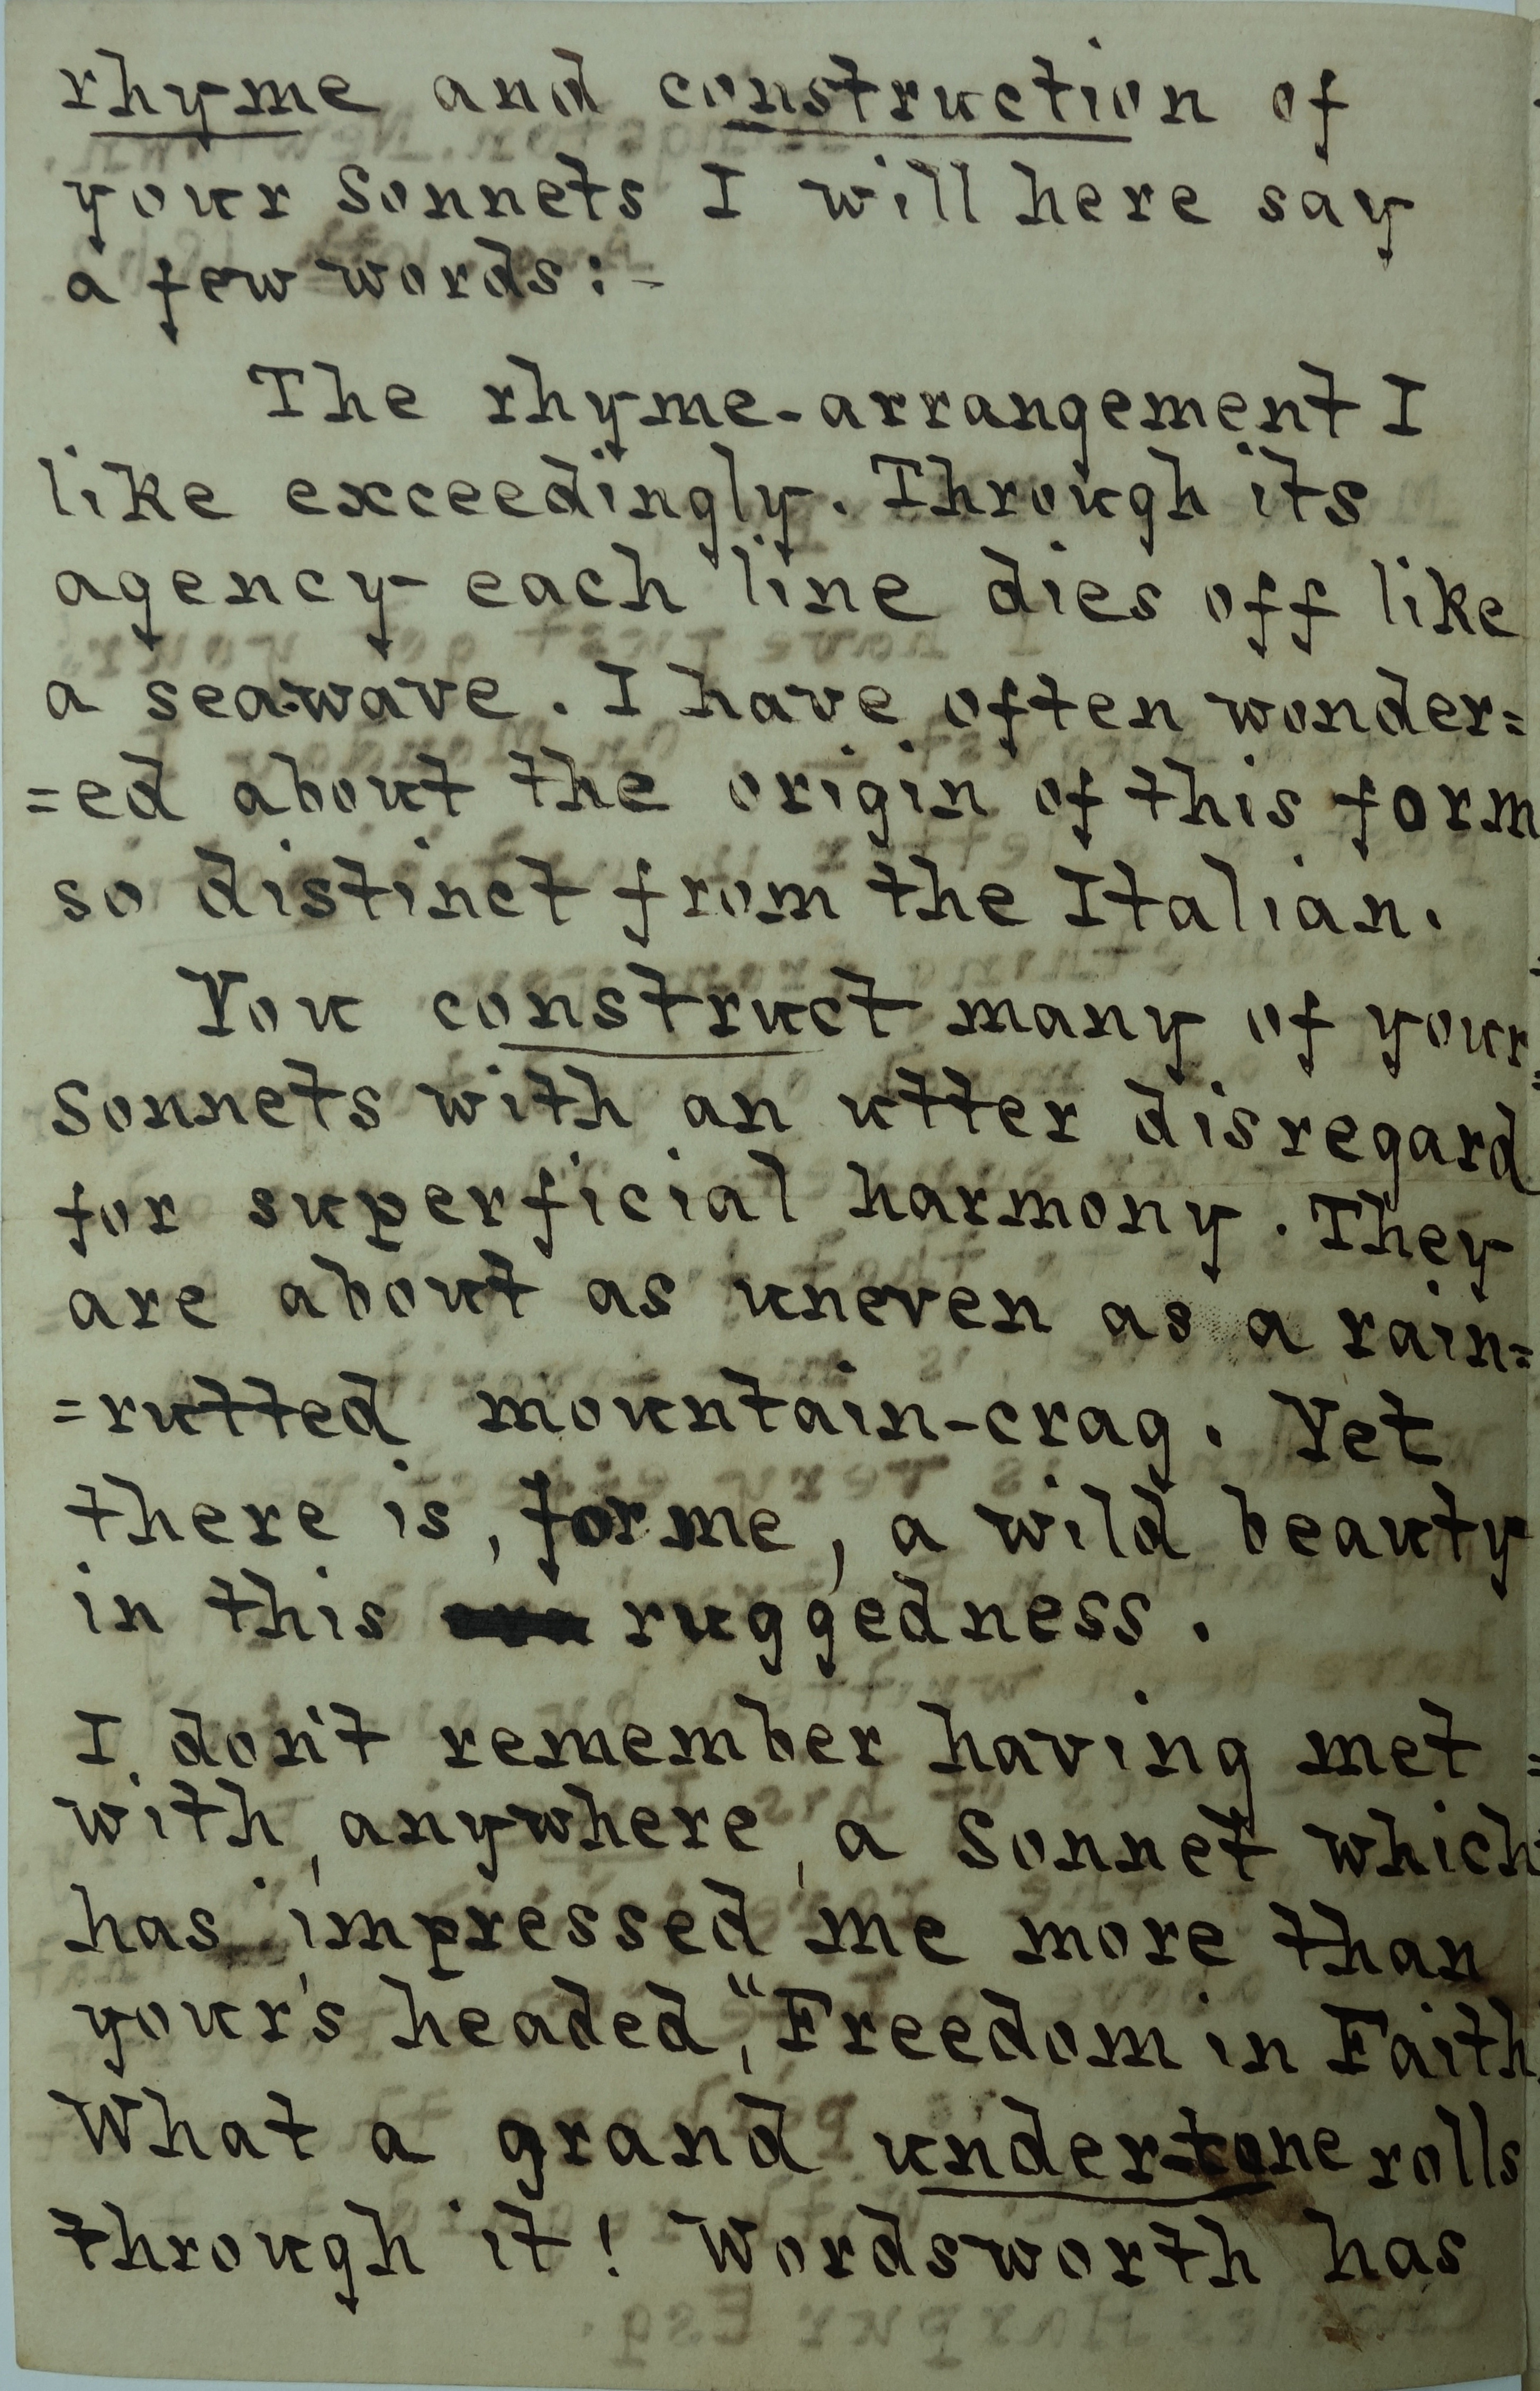 rhyme and construction of
your Sonnets I will here say
a few words:-
The rhyme-arrangement I
like exceedingly. Through its
agency each line dies off like
a sea-wave. I have often wonder=
=ed about the origin of this form
so distinct from the Italian.
You construct many of your
Sonnets with an utter disregard
for superficial harmony. They
are about as uneven as a rain=
=rutted mountain-crag. Yet
there is, for me, a wild beauty
in this ruggedness.
I don't remember having met
with, anywhere, a Sonnet which
has impressed me more than
your's headed, "Freedom in Faith
What a grand under-tone rolls
through it! Wordsworth has